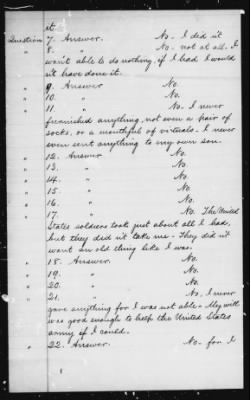 it.
Question 7. Answer. No - I did it
" 8. " No. not at all. I
want able to do nothing, if I had I would
n't have done it.
" 9. Answer No.
" 10. " No.
" 11. " No. I never
furnished anything, not even a pair of
socks, or a mouthful of victuals. I never
even sent anything to my own son.
" 12. Answer No.
" 13. " No.
" 14. " No.
" 15. " No.
" 16. " No.
" 17. " No. The United
States soldiers took just about all I had,
but they did n't take me - They did n't
want an old thing like I was.
" 18. Answer. No.
" 19. " No.
" 20. " No.
" 21. " No, I never
gave anything for I was not able - My will
was good enough to help the United States
army if I could.
" 22. Answer. No - for I